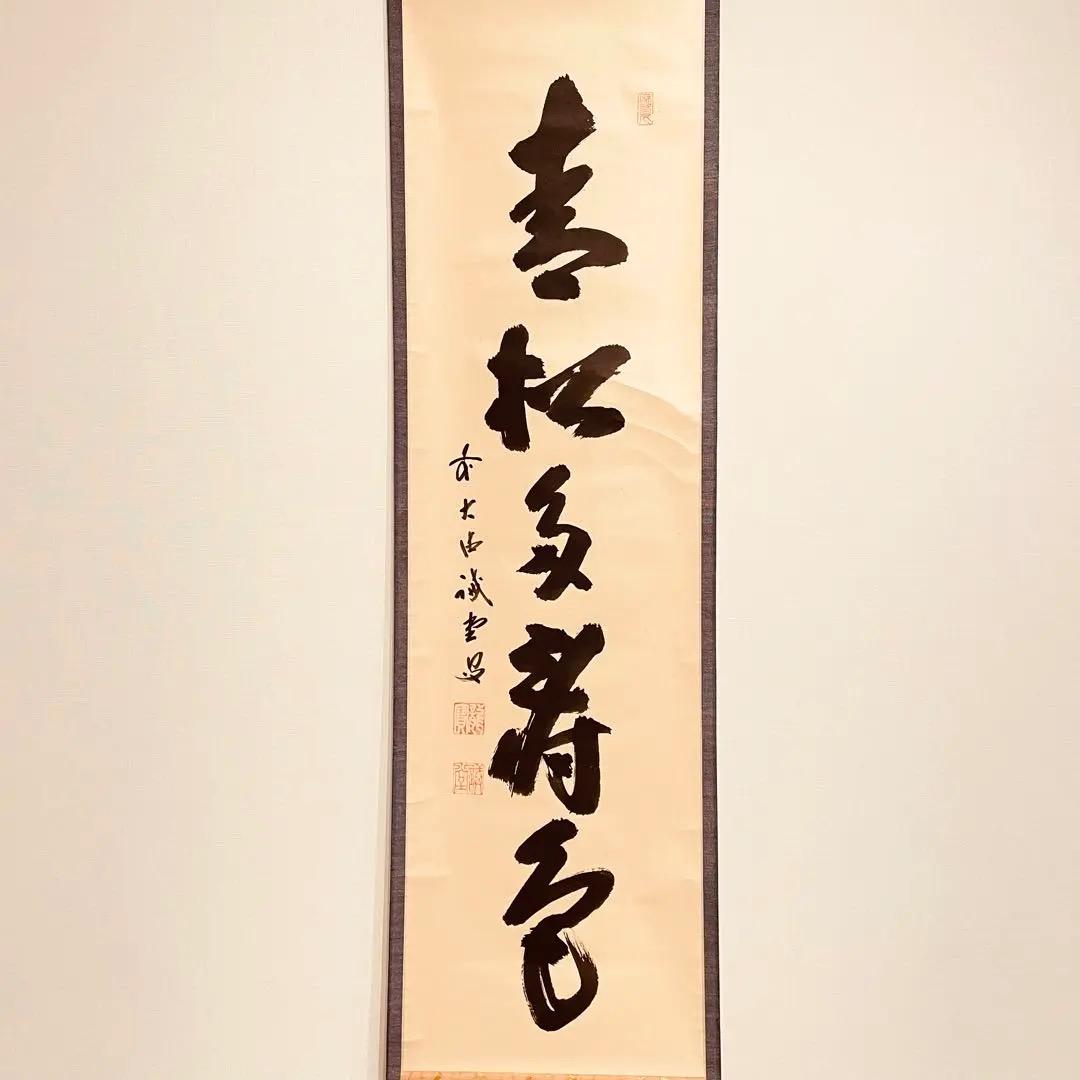 青松多寿色
前大誠堂書